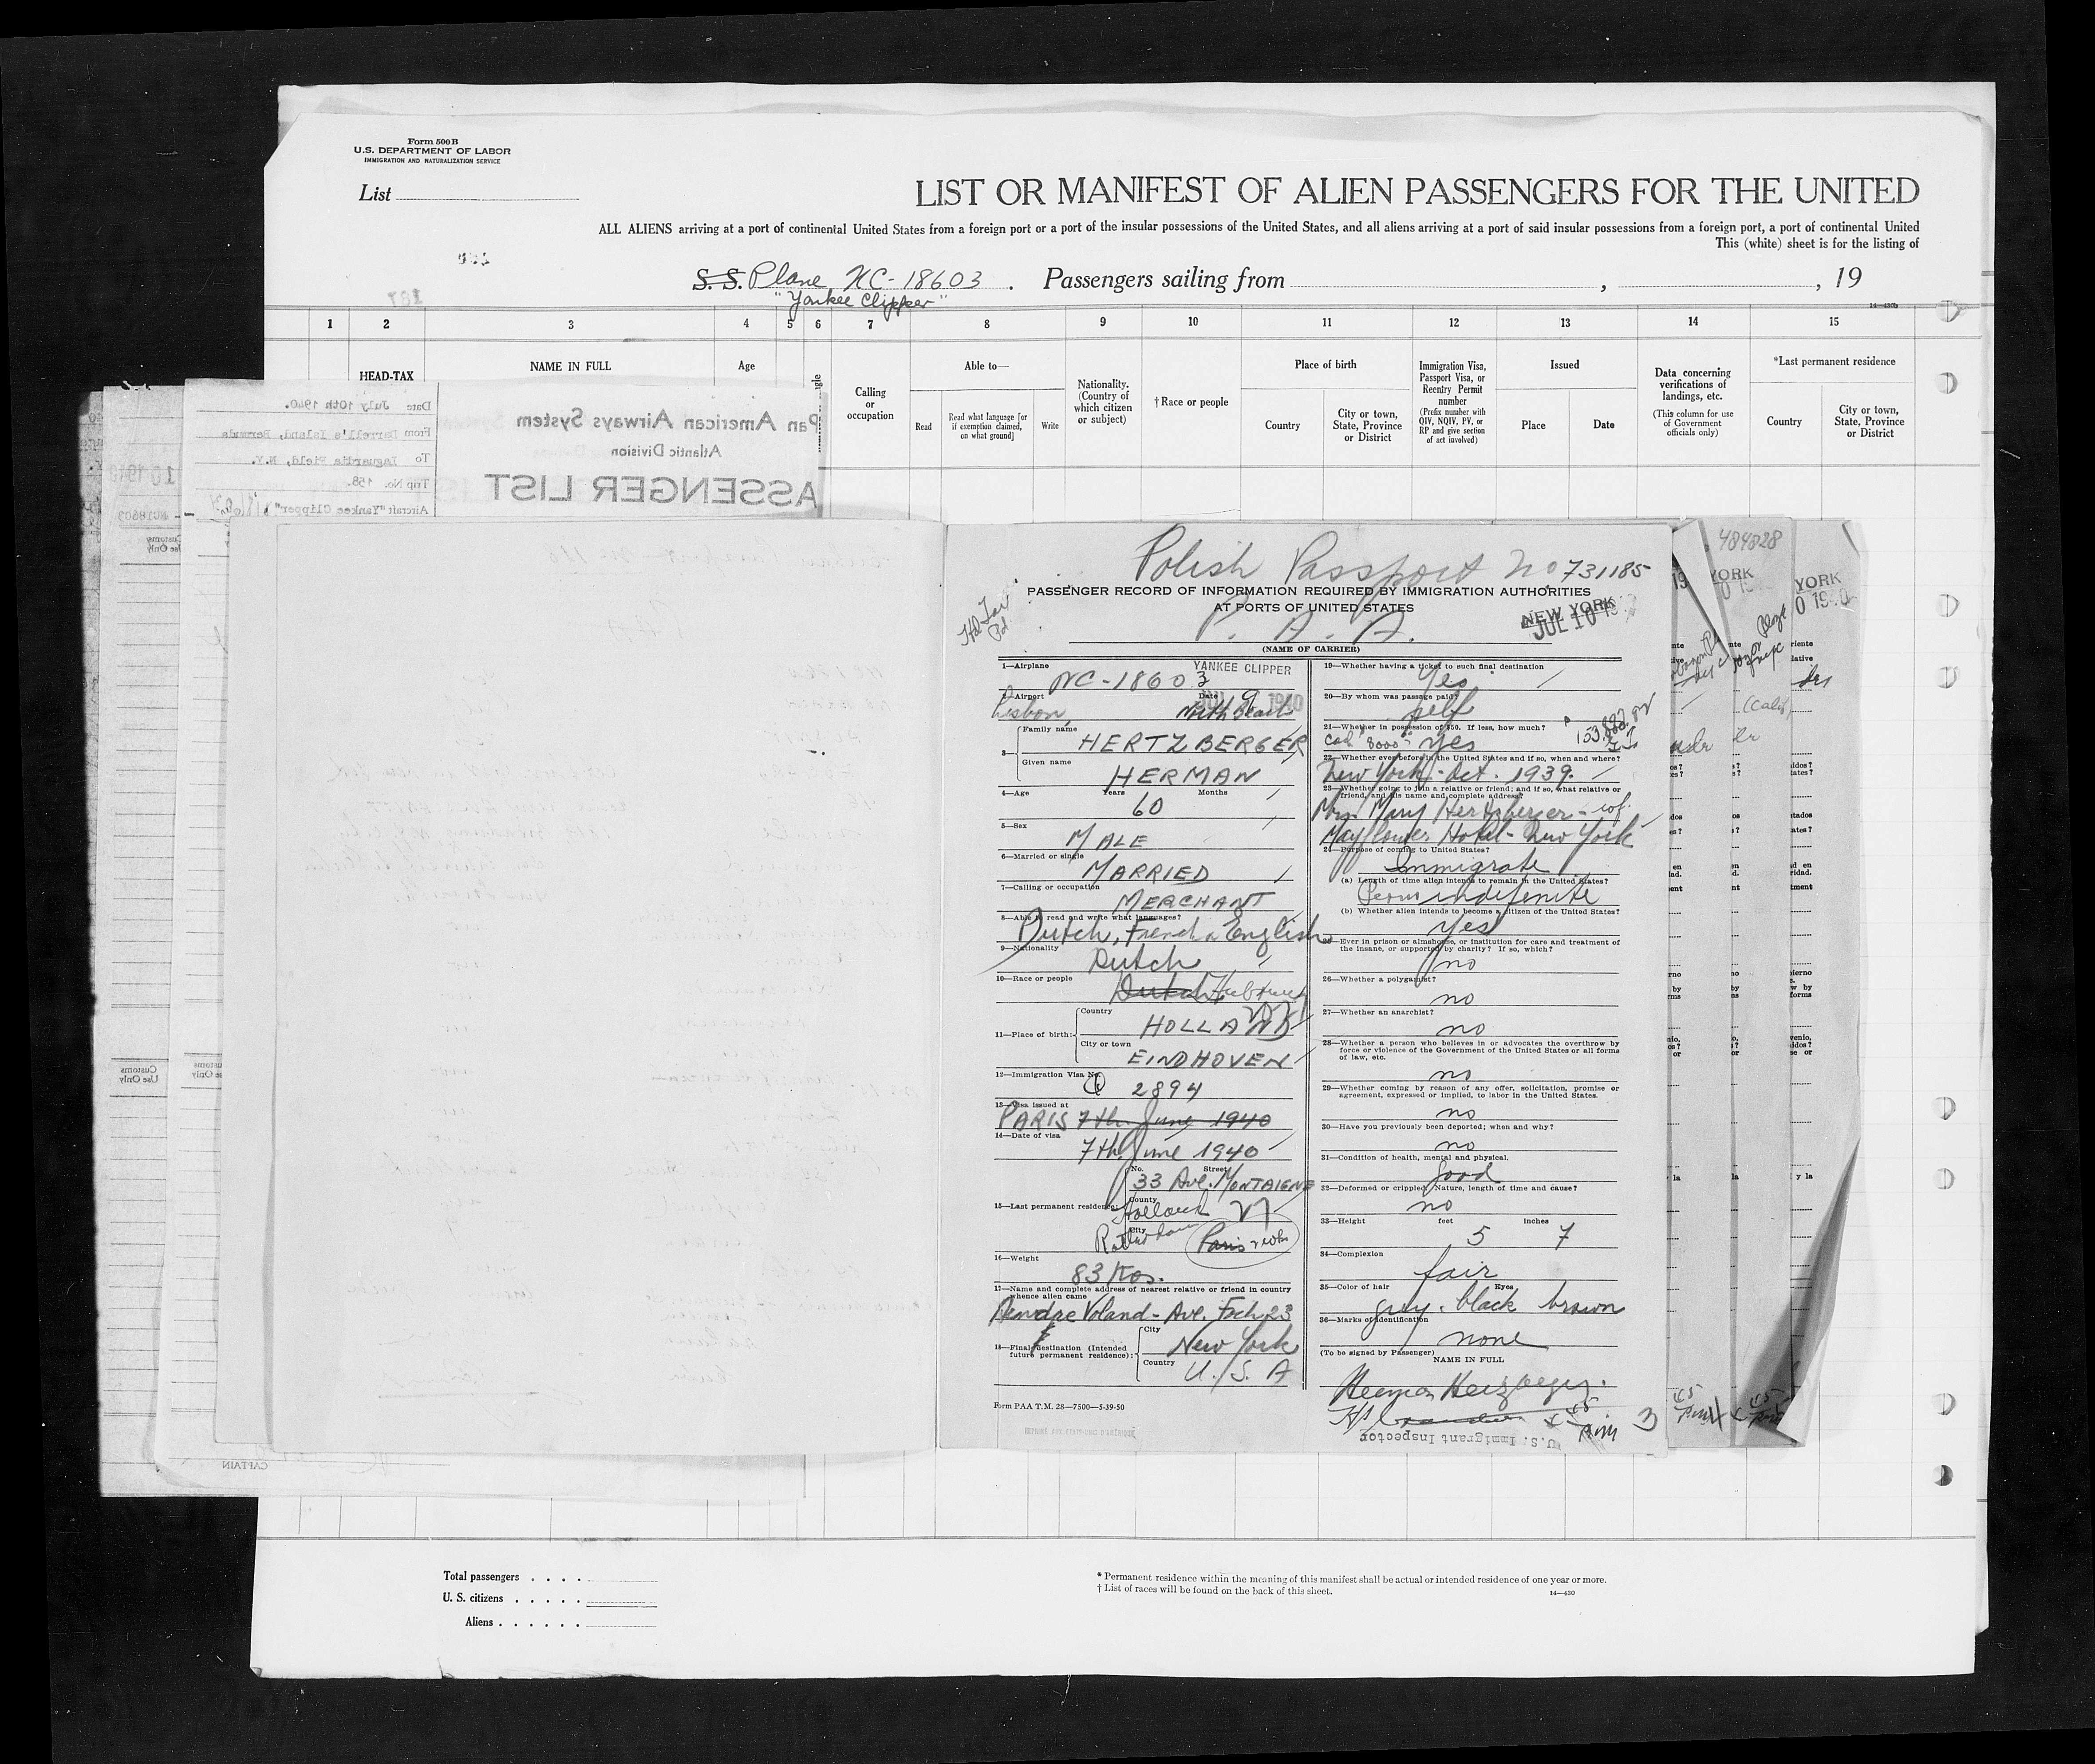 Form 500 B
U.S. DEPARTMENT OF LABOR
IMMIGRATION AND NATURALIZATION SERVICE
List
LIST OR MANIFEST OF ALIEN PASSENGERS FOR THE UNITED
ALL ALIENS arriving at a port of continental United States from a foreign port or a port of the insular possessions of the United States, and all aliens arriving at a port of said insular possessions from a foreign port, a port of continental United
This (white) sheet is for the listing of
S. S. Plane NC-18603 . Passengers sailing from , , 19
"Yankee Clipper"
1 2 3 4 5 6 7 8 9 10 11 12 13 14 15
HEAD-TAX
NAME IN FULL
Age
Calling or occupation
Able to—
Read
Read what language [or if exemption claimed, on what ground]
Write
Nationality. (Country of which citizen or subject)
† Race or people
Place of birth
Country
City or town, State, Province or District
Immigration Visa, Passport Visa, or Reentry Permit number
(Prefix number with QIV, NQIV, PV, or RP and give section of act involved)
Issued
Place
Date
Data concerning verifications of landings, etc.
(This column for use of Government officials only)
*Last permanent residence
Country
City or town, State, Province or District
Pan American Airways System
Atlantic Division
PASSENGER LIST
Date July 10th 1940.
From Darrell's Island, Bermuda
To Laguardia Field, N.Y.
Trip No. 158.
Aircraft "Yankee Clipper"
NC18603
Customs Use Only
CAPTAIN
Polish Passport No 731185
PASSENGER RECORD OF INFORMATION REQUIRED BY IMMIGRATION AUTHORITIES
AT PORTS OF UNITED STATES
Hd Tax Pd
P. A. A.
NEW YORK
JUL 10 19
(NAME OF CARRIER)
1—Airplane NC-18603 YANKEE CLIPPER
2—Airport Lisbon, Date JUL 9 1940
North Beach
3— Family name HERTZBERGER
Given name HERMAN
4—Age Years 60 Months
5—Sex MALE
6—Married or single MARRIED
7—Calling or occupation MERCHANT
8—Able to read and write what languages?
Dutch, French & English
9—Nationality Dutch
10—Race or people Dutch Hebrew
11—Place of birth: Country HOLLAND
City or town EINDHOVEN
12—Immigration Visa No. 2894
13—Visa issued at PARIS 7th June 1940
14—Date of visa 7th June 1940
No. Street 33 Ave. MONTAIGNE
15—Last permanent residence: County Holland
City Rotterdam Paris
16—Weight 83 Kos.
17—Name and complete address of nearest relative or friend in country whence alien came
Voland - Ave. Foch 23
18—Final destination (Intended future permanent residence): City New York
Country U. S. A
Form PAA T.M. 28—7500—5-39-50
19—Whether having a ticket to such final destination
Yes
20—By whom was passage paid?
self
21—Whether in possession of $50. If less, how much?
8000 yes
22—Whether ever before in the United States and if so, when and where?
New York - Oct. 1939.
23—Whether going to join a relative or friend; and if so, what relative or friend, and his name and complete address?
Mrs. Mary Hertzberger - wf.
Mayflower Hotel - New York
24—Purpose of coming to United States?
Immigrate
(a) Length of time alien intends to remain in the United States?
Perm indefinite
(b) Whether alien intends to become a citizen of the United States?
yes
25—Ever in prison or almshouse, or institution for care and treatment of the insane, or supported by charity? If so, which?
no
26—Whether a polygamist?
no
27—Whether an anarchist?
no
28—Whether a person who believes in or advocates the overthrow by force or violence of the Government of the United States or all forms of law, etc.
no
29—Whether coming by reason of any offer, solicitation, promise or agreement, expressed or implied, to labor in the United States.
no
30—Have you previously been deported; when and why?
no
31—Condition of health, mental and physical.
good
32—Deformed or crippled. Nature, length of time and cause?
no
33—Height feet 5 inches 7
34—Complexion
fair
35—Color of hair Eyes
grey. black brown
36—Marks of identification
none
(To be signed by Passenger)
NAME IN FULL
U. S. Immigrant Inspector
3
484828
YORK
YORK
(Calif)
Total passengers . . . .
U. S. citizens . . . . .
Aliens . . . . . .
* Permanent residence within the meaning of this manifest shall be actual or intended residence of one year or more.
† List of races will be found on the back of this sheet.
14—430